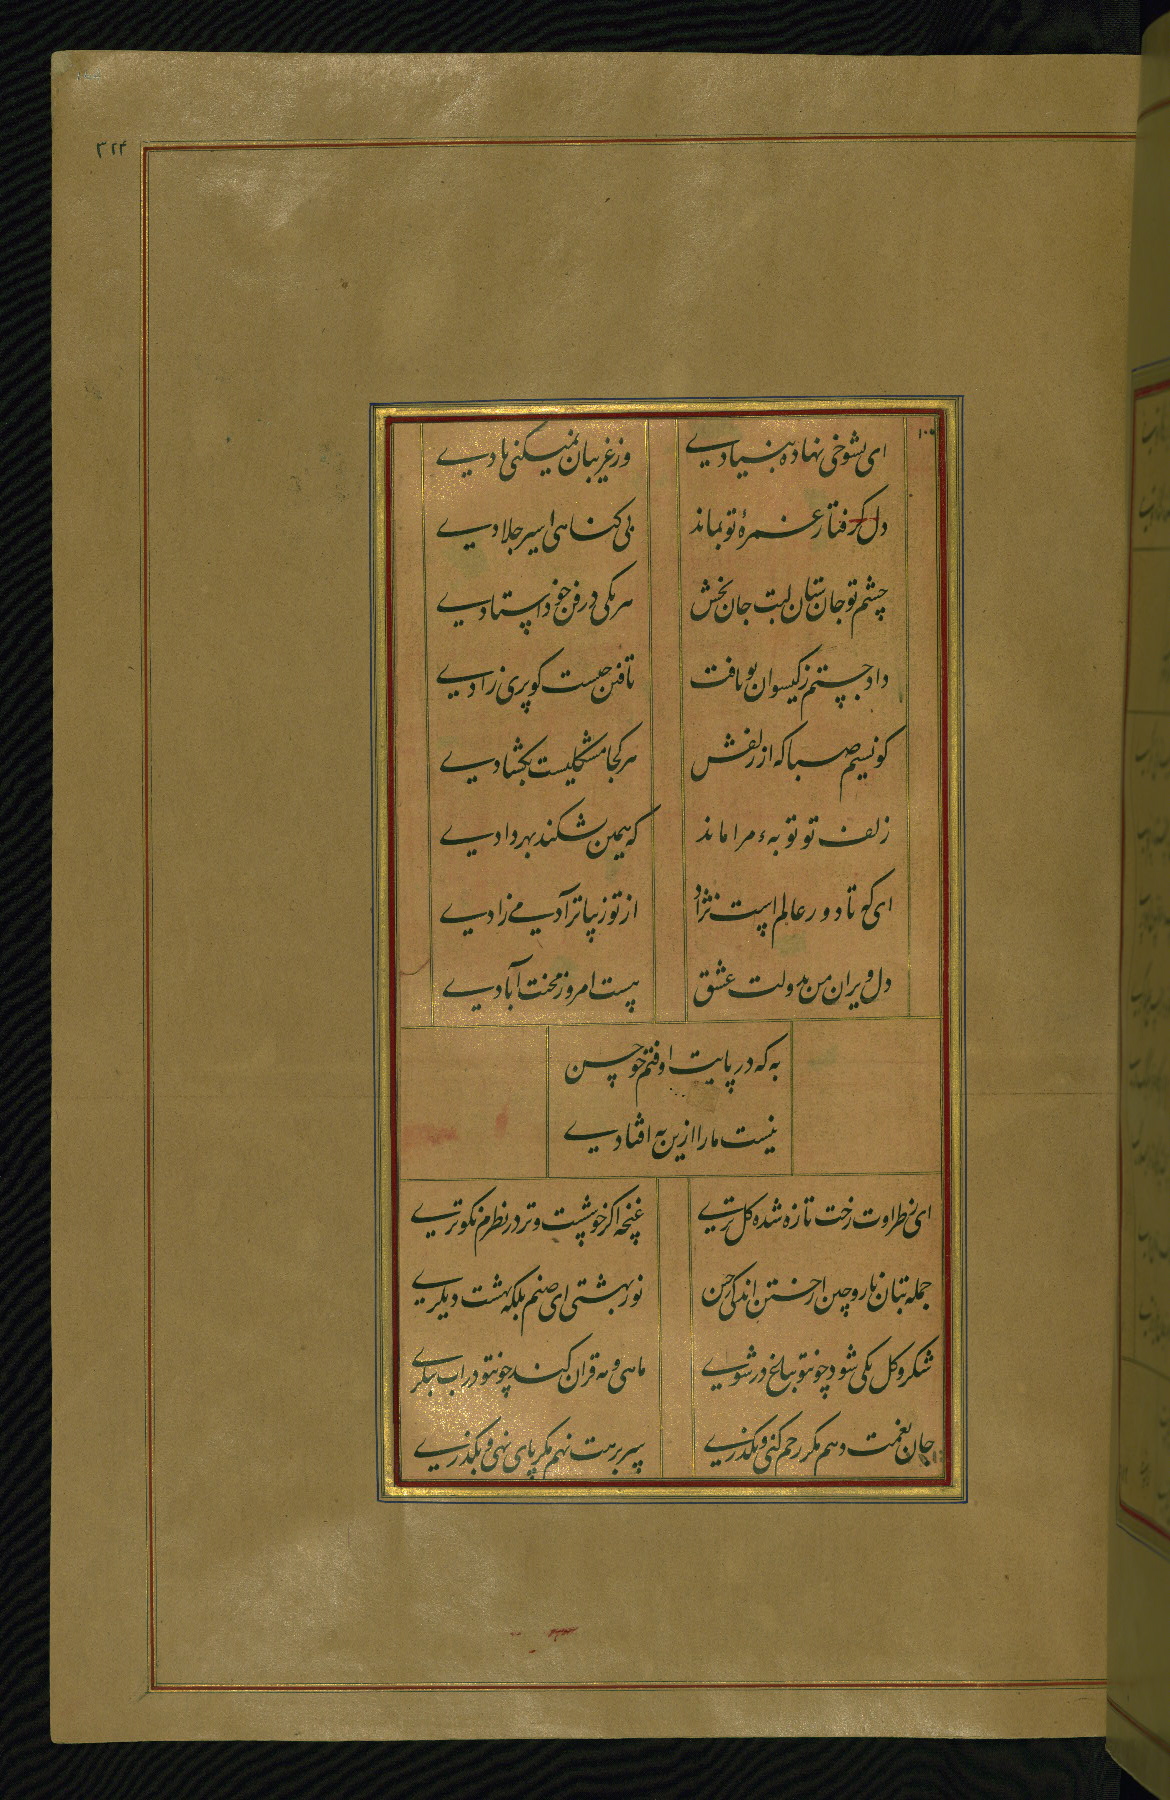 ۳۲۴
۱۰۰
ای بشوخی نهاده بنیادی وز غریبان نمیکنی یادی
دل گرفتار غمزهٔ تو بماند بی کناهی اسیر جلادی
چشم تو جان ستان لبت جان بخش هر یکی در فن خود استادی
داد جستم ز کیسوان تو یافت تافتن جیست کو پری زادی
کو نسیم صبا که از زلفش هر کجا مشکلیست بکشادی
زلف تو توبهٔ مرا ماند که همین شکند بهر دادی
ای که تا دور عالم است نژاد از تو زیباتر آدمی زادی
دل ویران من بدولت عشق هست امروز محنت آبادی
به که در پایت اوفتم چو حسن
نیست ما را ازین به افتادی
ای بطراوت رخت تازه شده کل تری غنچه اکر خوشست وتر در نظرم نکوتری
جمله بتان یار و چین از ختن اند کی حسن نور بهشتی ای صنم بلکه بهشت دیکری
شکر و کل یکی شود چونتو بباغ در شوی ماهی و مه قران کند چونتو در اب بنکری
جان بغمت دهم مکر رحم کنی و بکذری سر برهت نهم مکر پای نهی و بکذری